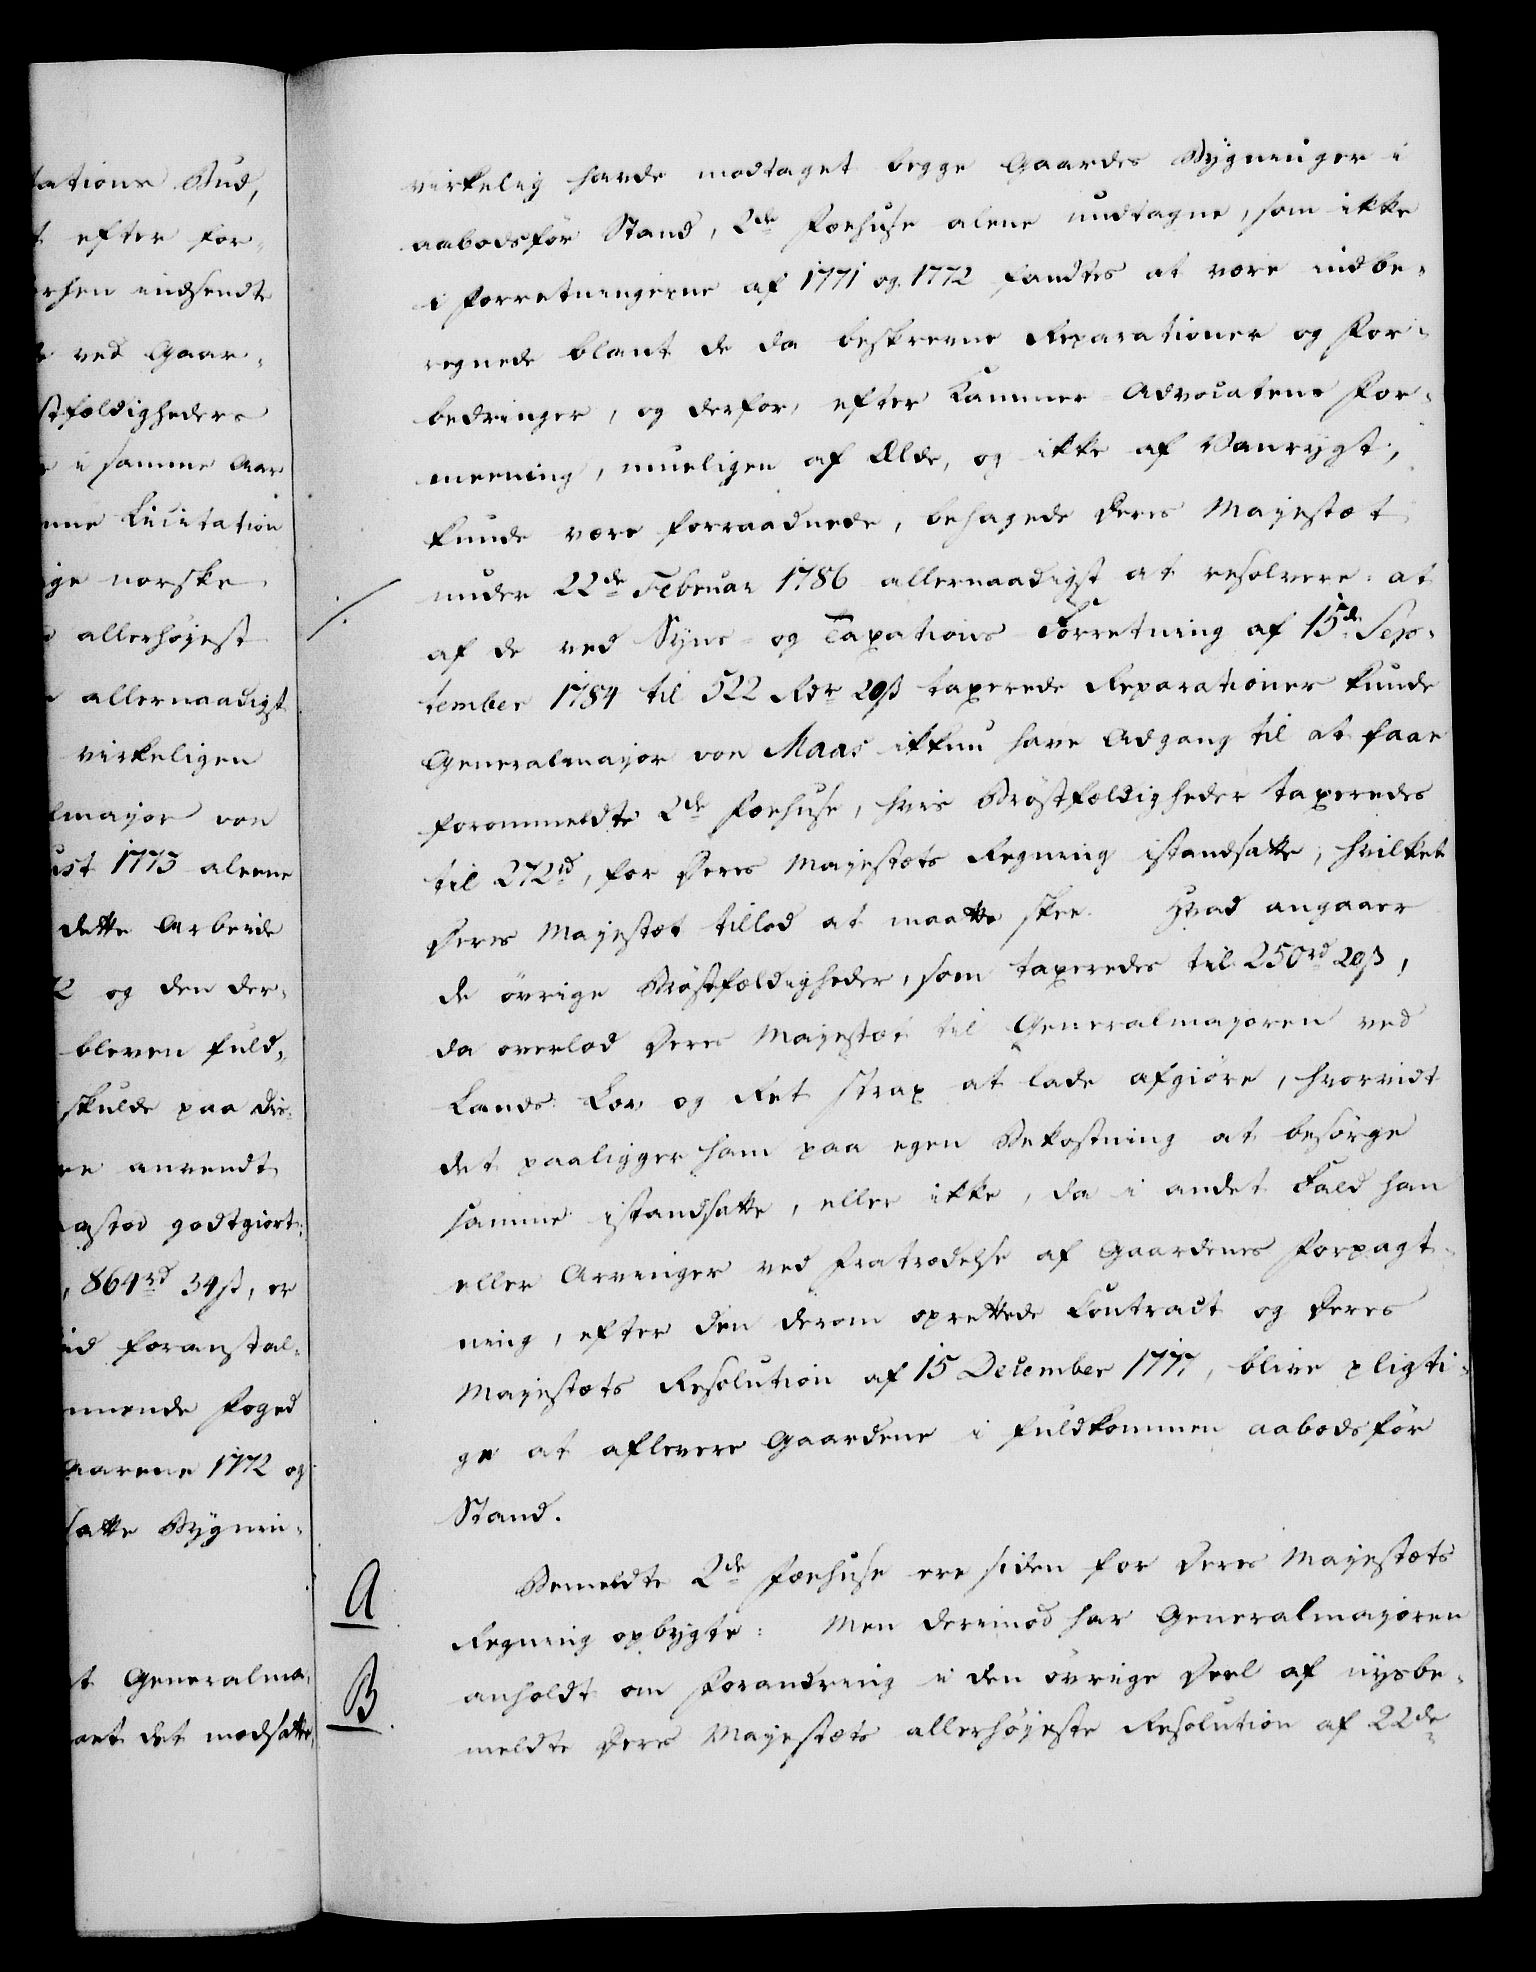 tations Bud,
t efter for-
erhen indsendte
ved Gaar-
stfældigheders
i samme Aar
nne Licitation
ige norske
allerhøyest
allernaadigst
virkeligen
lmajor von
ust 1773 aleene
dette Arbeide
2 og den der-
bleven fuld-
skulde paa die-
re anvendt
astod godtgiort:
, 864rd 34ß, er
id foranstal-
mmende Foged
Aarene 1772 og
satte Bygnin-
st Generalma-
aet det modsatte,
virkelig havde modtaget begge Gaardes Bygninger i
aabodsför Stand, 2de Foehuse alene undtagne, som ikke
i Forretningerne af 1771 og 1772 fandtes at være indbe-
regnede blant de da beskrevne Reparationer og For-
bedringer, og derfor, efter Kammer-Advocatens For-
meening, mueligen af Ælde, og ikke af Vanrygt,
kunde være forraadnede, behagede Deres Majestæt
under 22de Februar 1786 allernaadigst at resolvere: at
af de ved Syns- og Taxations-Forretning af 15de Sep-
tember 1784 til 522 Rdr 20ß taxerede Reparationer kunde
Generalmajor von Maas ikkun have Adgang til at faae
forommeldte 2de Foehuse, hvis Bröstfældigheder taxeredes
til 272rd, for Deres Majestæts Regning istandsatte, hvilket
Deres Majestæt tillod at maatte skee. Hvad angaaer
de övrige Bröstfældigheder, som taxeredes til 250rd 20ß,
da overlod Deres Majestæt til Generalmajoren ved
Lands Lov og Ret strax at lade afgiöre, hvorvidt
det paaligger ham paa egen Bekostning at besörge
samme istandsatte, eller ikke, da i andet Fald han
eller Arvinger ved Fratrædelse af Gaardenes Forpagt-
ning, efter den derom oprettede Contract og Deres
Majestæts Resolution af 15 December 1777, blive pligti-
ge at aflevere Gaardene i fuldkommen aabodsför
Stand.
A Bemeldte 2de Foehuse ere siden for Deres Majestæts
Regning opbygte: Men derimod har Generalmajoren
B anholdt om Forandring i den övrige Deel af nysbe-
meldte Deres Majestæts allerhöjeste Resolution af 22de